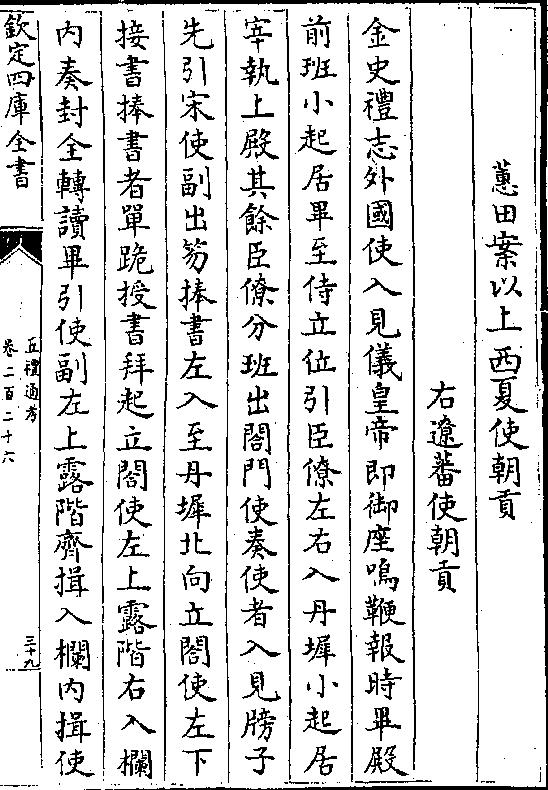 蕙田案以上西夏使朝貢
右遼蕃使朝貢
金史禮志外國使入見儀皇帝即御座鳴鞭報時畢殿
前班小起居畢至侍立位引臣僚左右入丹墀小起居
宰執上殿其餘臣僚分班出閤門使奏使者入見牓子
先引宋使副出笏捧書左入至丹墀北向立閤使左下
接書捧書者單跪授書拜起立閤使左上露階右入欄
内奏封全轉讀畢引使副左上露階齊揖入欄内揖使
欽定四庫全書
五禮通考
卷二百二十六
三十九